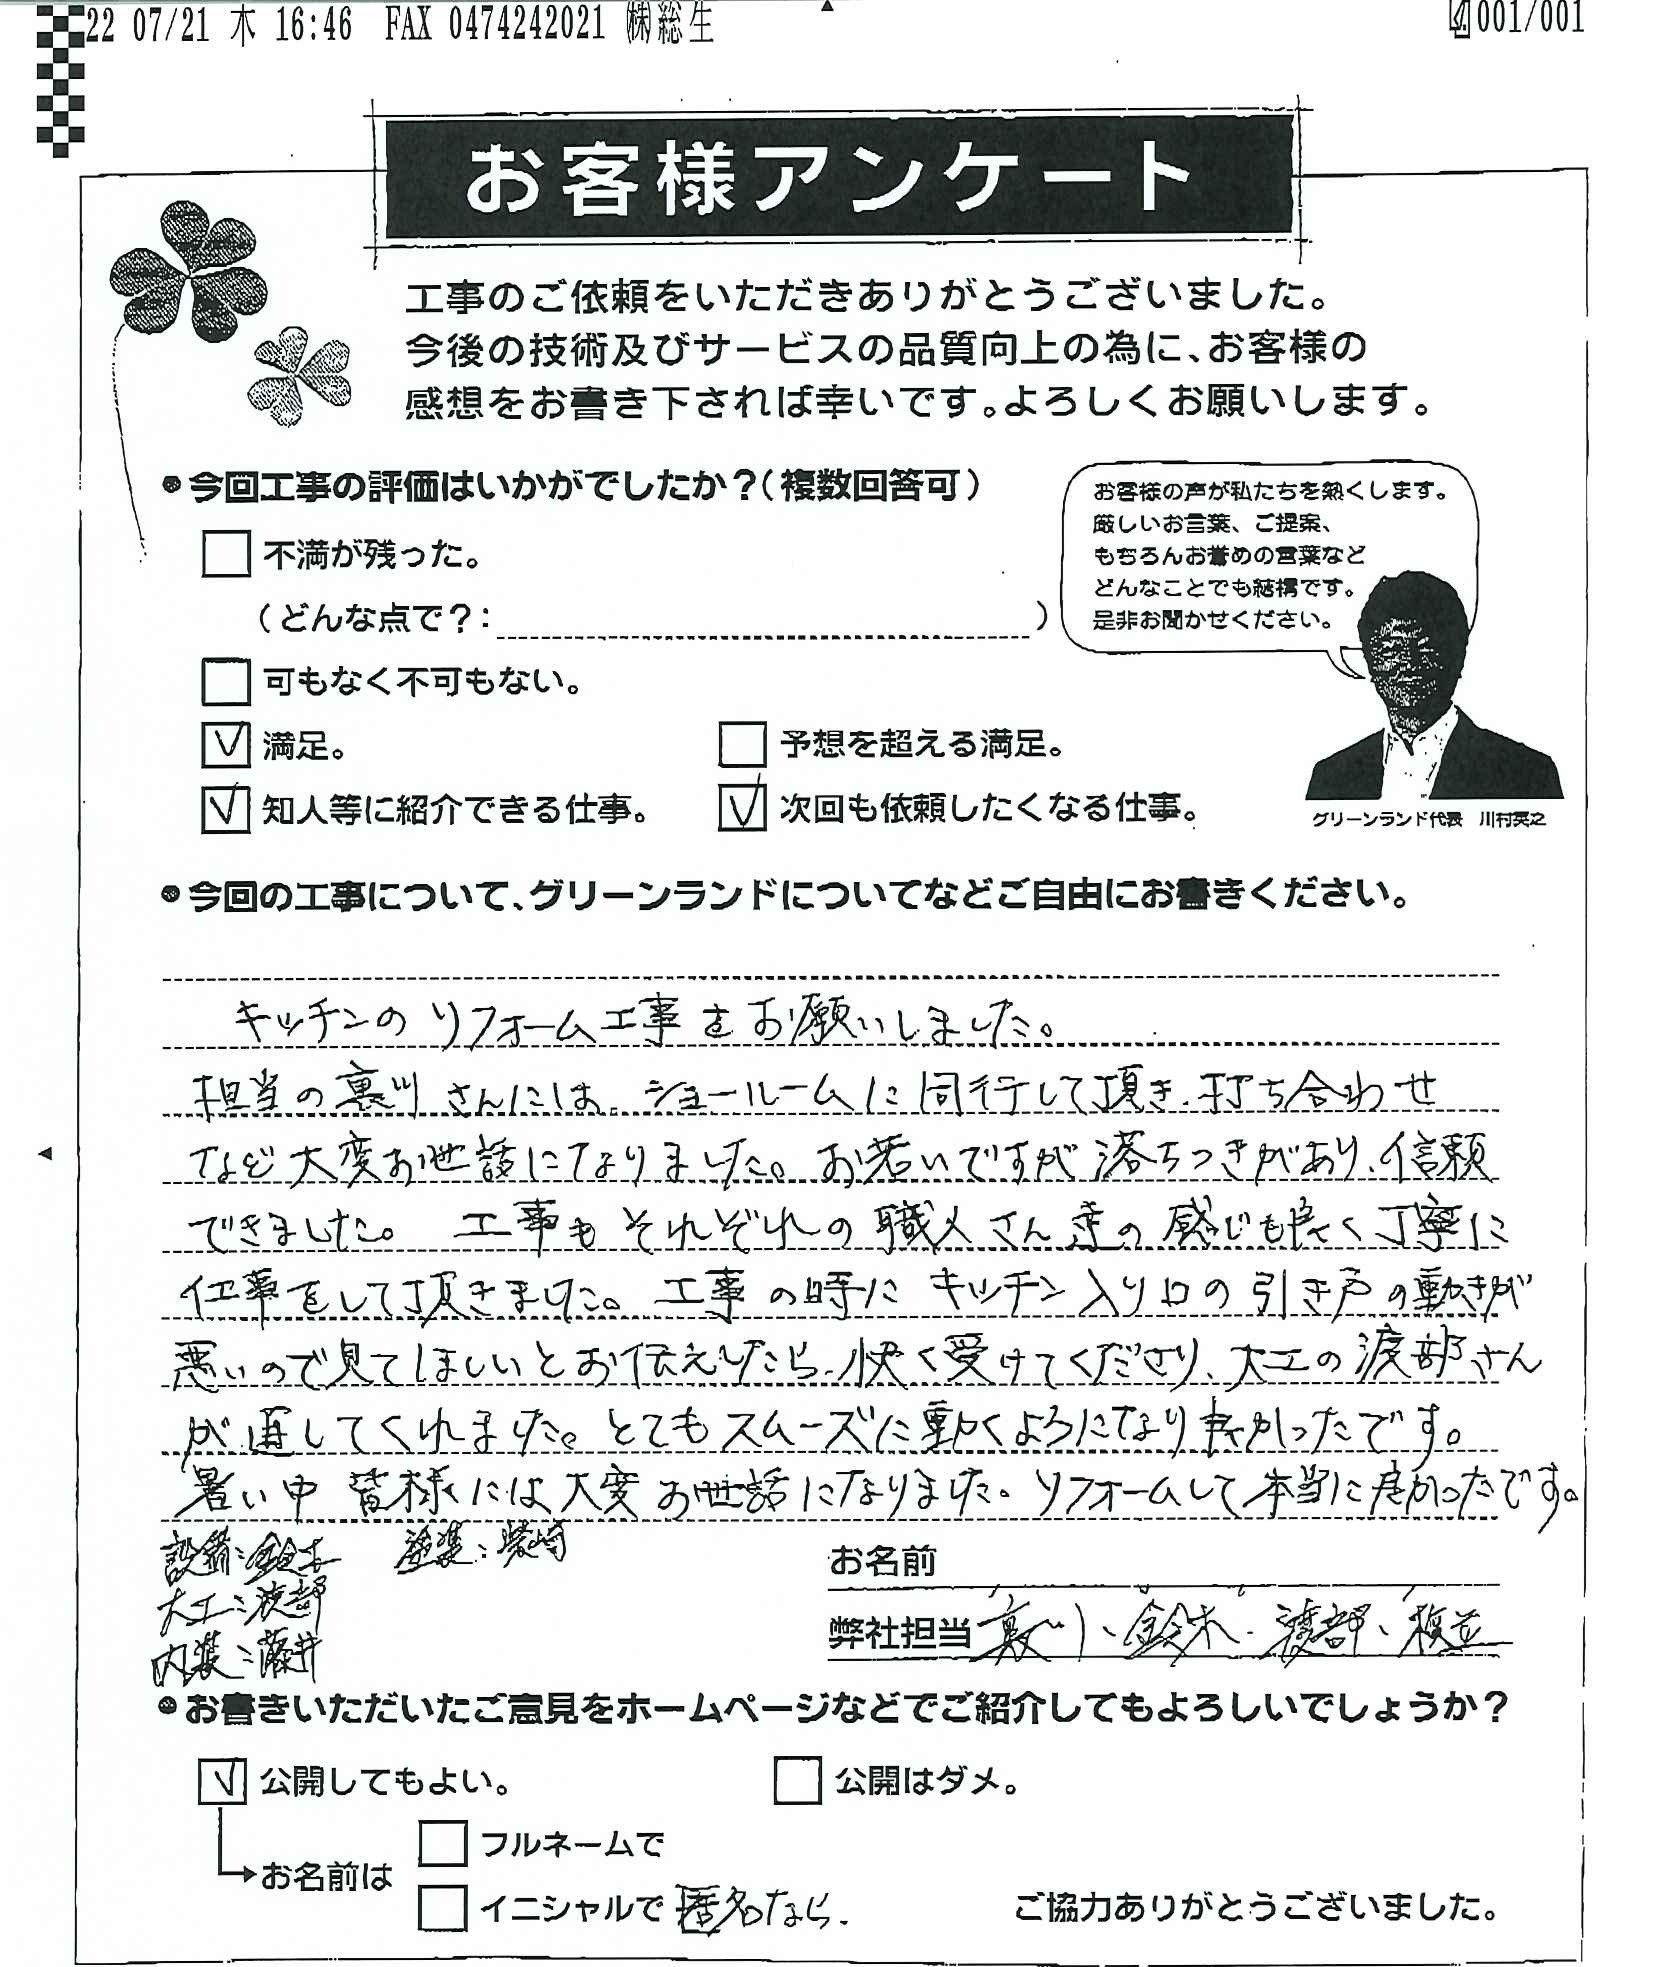 22 07/21 木 16:46 FAX 0474242021 ㈱総生 001/001
お客様アンケート
工事のご依頼をいただきありがとうございました。
今後の技術及びサービスの品質向上の為に、お客様の
感想をお書き下されば幸いです。よろしくお願いします。
今回工事の評価はいかがでしたか？（複数回答可）
お客様の声が私たちを熱くします。
厳しいお言葉、ご提案、
もちろんお誉めの言葉など
どんなことでも結構です。
是非お聞かせください。
不満が残った。
（どんな点で？： ）
可もなく不可もない。
満足。 予想を超える満足。
知人等に紹介できる仕事。 次回も依頼したくなる仕事。
グリーンランド代表 川村英之
今回の工事について、グリーンランドについてなどご自由にお書きください。
キッチンのリフォーム工事をお願いしました。
担当の裏川さんには、ショールームに同行して頂き、打ち合わせ
など大変お世話になりました。お若いですが落ちつきがあり、信頼
できました。 工事もそれぞれの職人さん達の感じも良く丁寧に
仕事をして頂きました。工事の時にキッチン入り口の引き戸の動きが
悪いので見てほしいとお伝えしたら、快く受けてくださり、大工の渡部さん
が直してくれました。とてもスムーズに動くようになり良かったです。
暑い中 皆様には大変お世話になりました。リフォームして本当に良かったです。
設備：鈴木 塗装：柴崎
大工：渡部
内装：藤井
お名前
弊社担当 裏川、鈴木、渡部、
お書きいただいたご意見をホームページなどでご紹介してもよろしいでしょうか？
公開してもよい。 公開はダメ。
お名前は フルネームで
イニシャルで 匿名なら。
ご協力ありがとうございました。